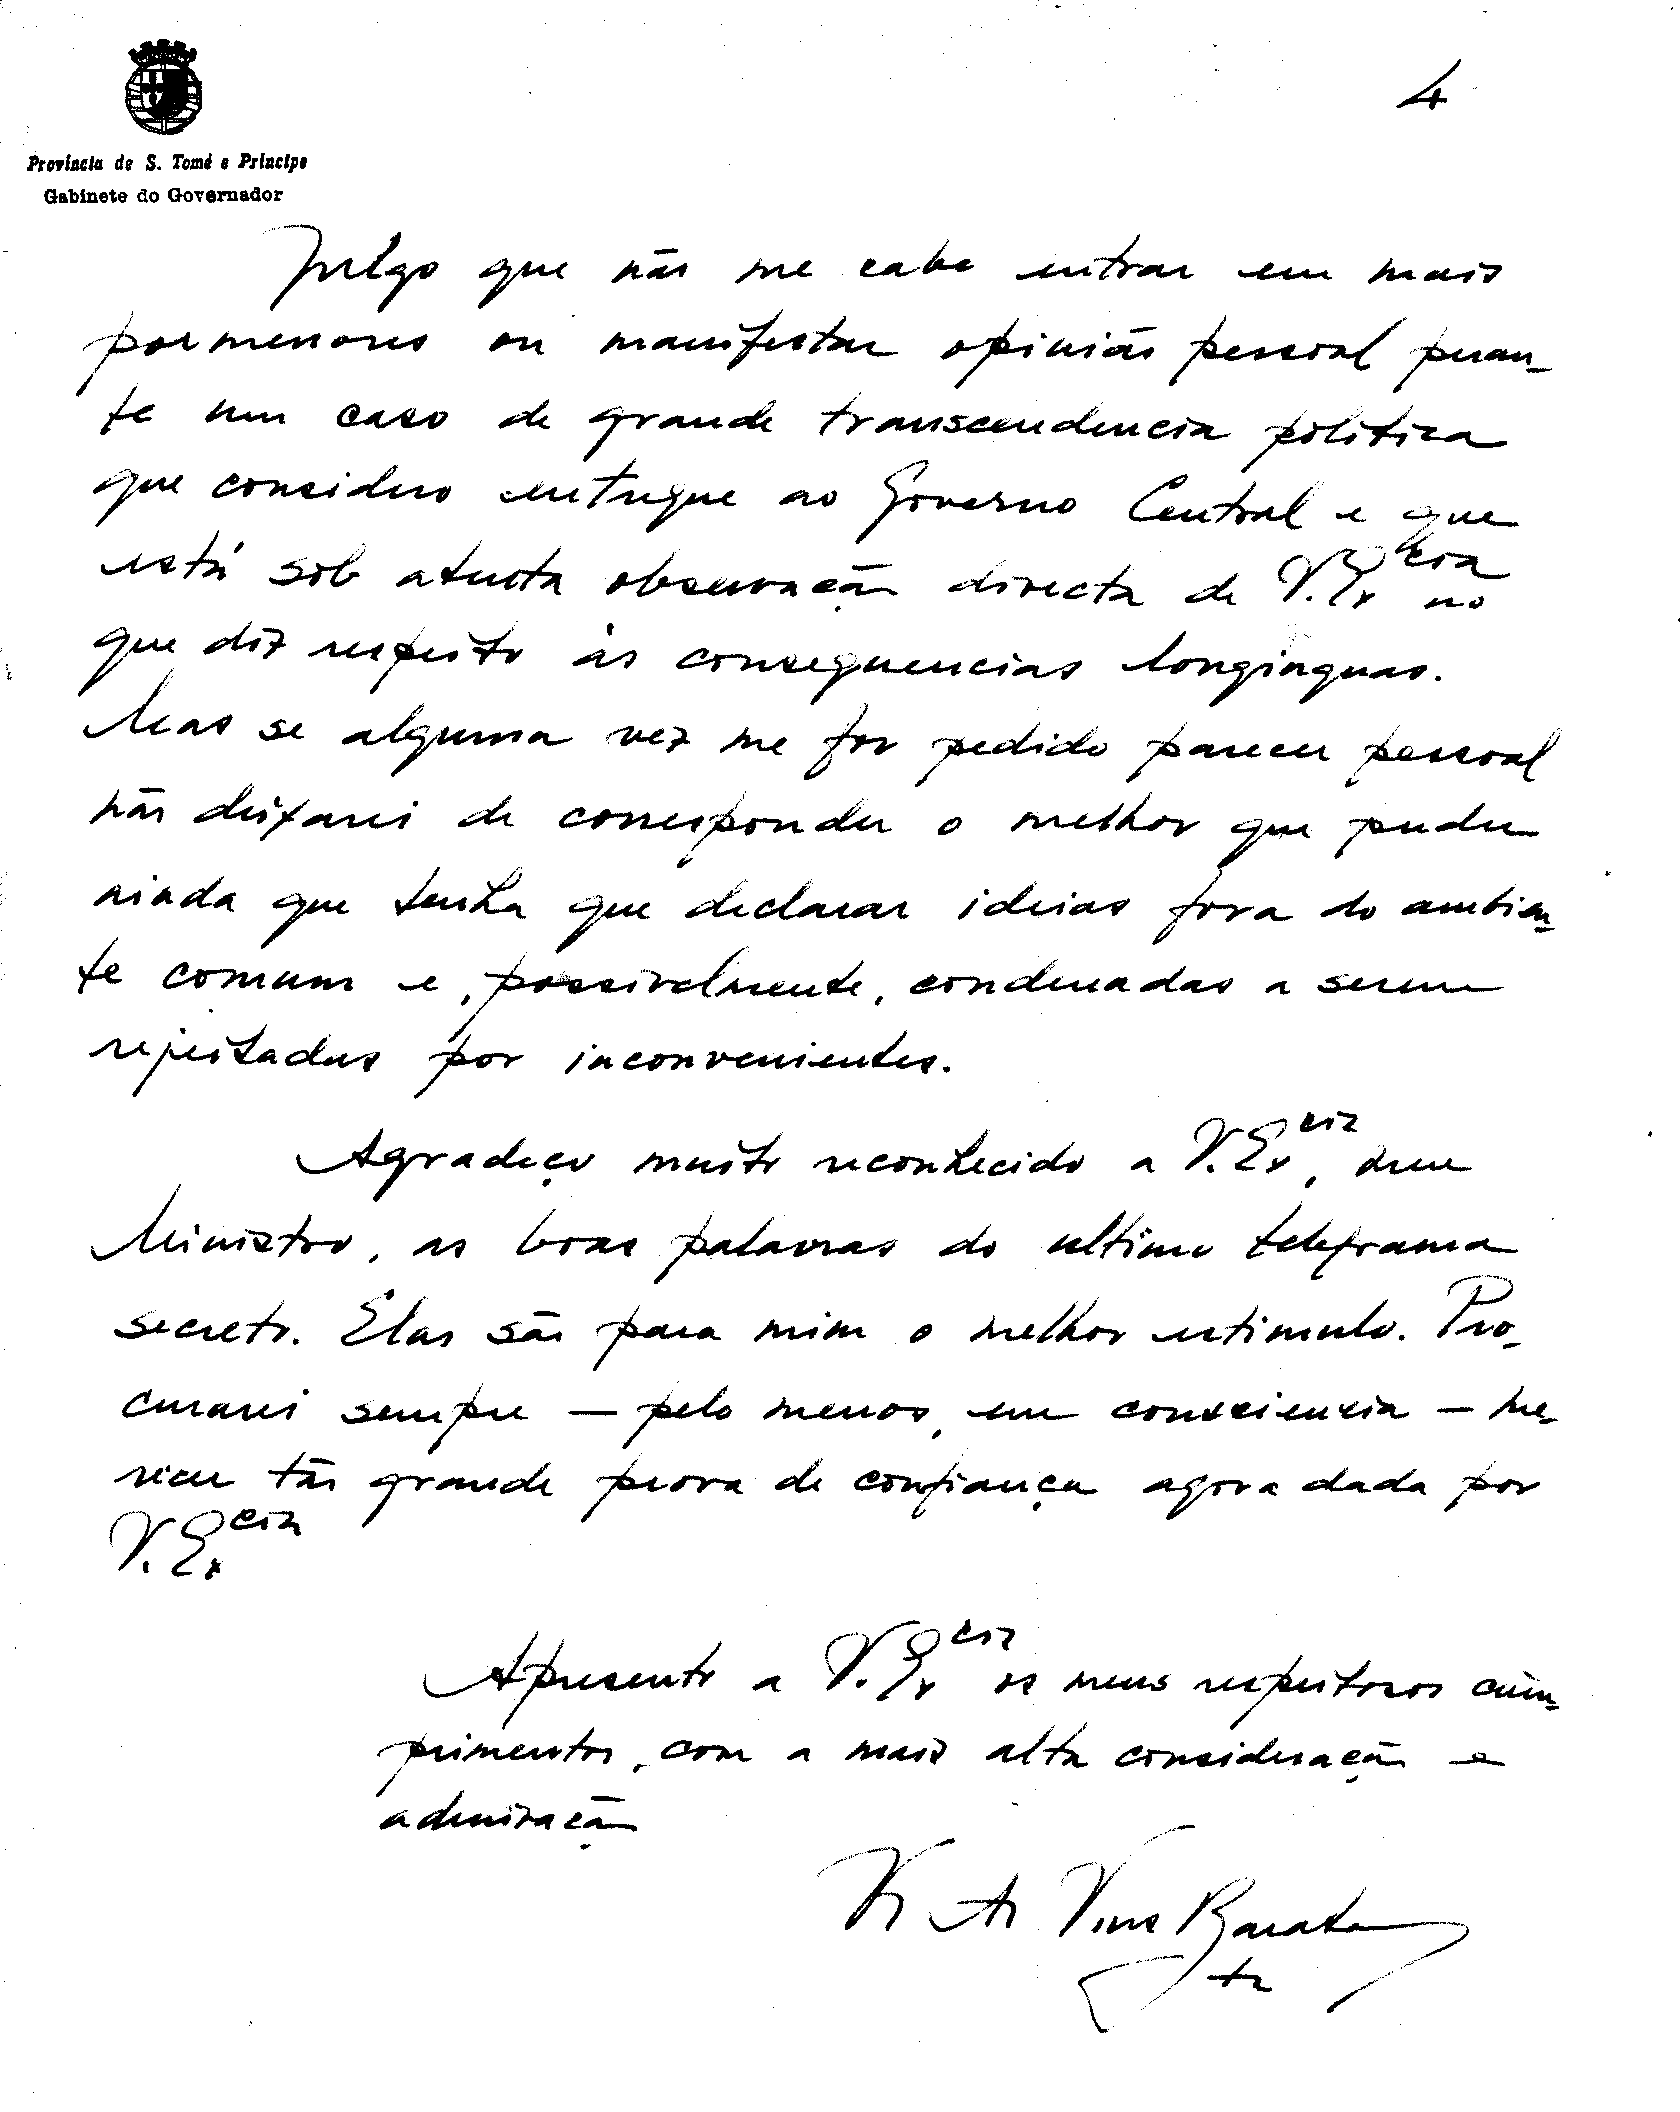 4
Província de S. Tomé e Príncipe
Gabinete do Governador
Julgo que não me cabe entrar em mais
pormenores ou manifestar opinião pessoal peran-
te um caso de grande transcendencia politica
que considero entregue ao Governo Central e que
está sob atenta observação directa de V. Ex.cia no
que diz respeito às consequencias longinquas.
Mas se alguma vez me for pedido parecer pessoal
não deixarei de corresponder o melhor que puder
ainda que tenha que declarar ideias fora do ambien-
te comum e, possivelmente, condenadas a serem
rejeitadas por inconvenientes.
Agradeço muito reconhecido a V. Ex.cia, Snr.
Ministro, as boas palavras do ultimo telegrama
secreto. Elas são para mim o melhor estimulo. Pro-
curarei sempre — pelo menos, em consciencia — me-
recer tão grande prova de confiança agora dada por
V. Ex.cia
Apresento a V. Ex.cia os meus respeitosos cum-
primentos, com a mais alta consideração e
admiração
Vaz Barata